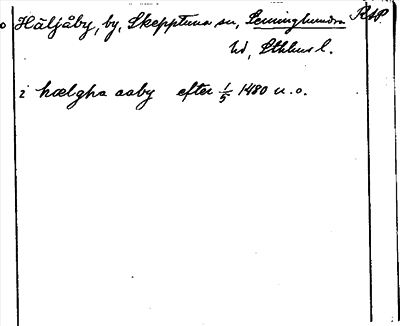 Häljåby, by, Skepptuna sn, Seminghundra
hd, Sthlms l.
i hælgha aaby efter 1/5 1480 u.o.